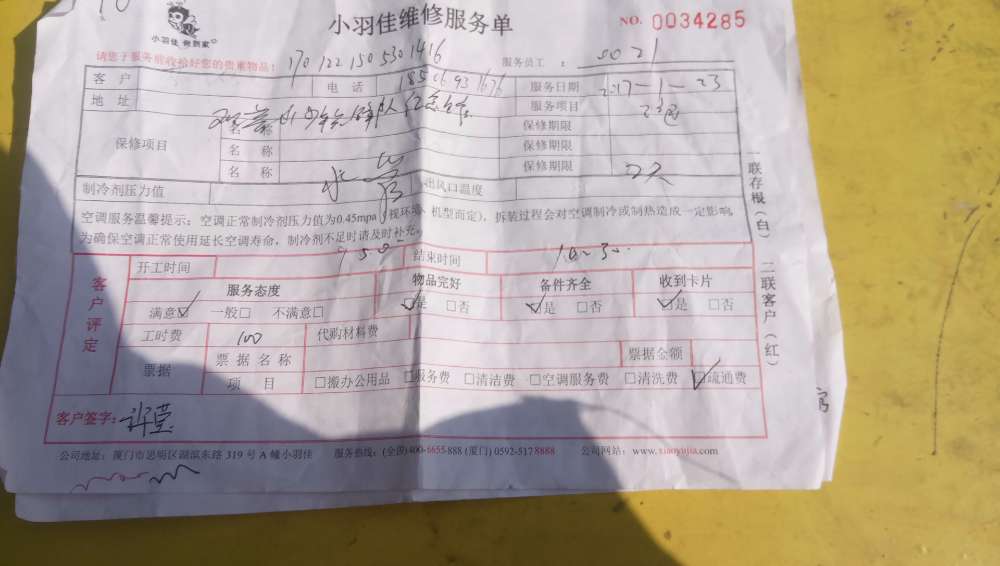 小羽佳维修服务单
NO. 0034285
小羽佳 例到家
请您于服务前收拾好您的贵重物品:
1701221505301416
服务员工 : 5021
客 户
电 话
服务日期 2017-1-23
地 址
服务项目
保修项目
名 称
保修期限
名 称
保修期限
名 称
保修期限
制冷剂压力值
出风口温度
空调服务温馨提示:空调正常制冷剂压力值为0.45mpa(视环境、机型而定),拆装过程会对空调制冷或制热造成一定影响,
为确保空调正常使用延长空调寿命,制冷剂不足时请及时补充。
开工时间
结束时间 10:30
客户评定
服务态度
物品完好
备件齐全
收到卡片
满意☑ 一般□ 不满意□
☑是 □否
☑是 □否
☑是 □否
工时费 100
代购材料费
票据
票 据 名 称
票据金额
项 目
□搬办公用品 □服务费 □清洁费 □空调服务费 □清洗费 ☑疏通费
客户签字: 许莹
公司地址:厦门市思明区湖滨东路 319 号 A 幢小羽佳 服务热线:(全国)400-6655-888 (厦门) 0592-517 8888 公司网站:www.xiaoyujia.com
一联存根(白) 二联客户(红)